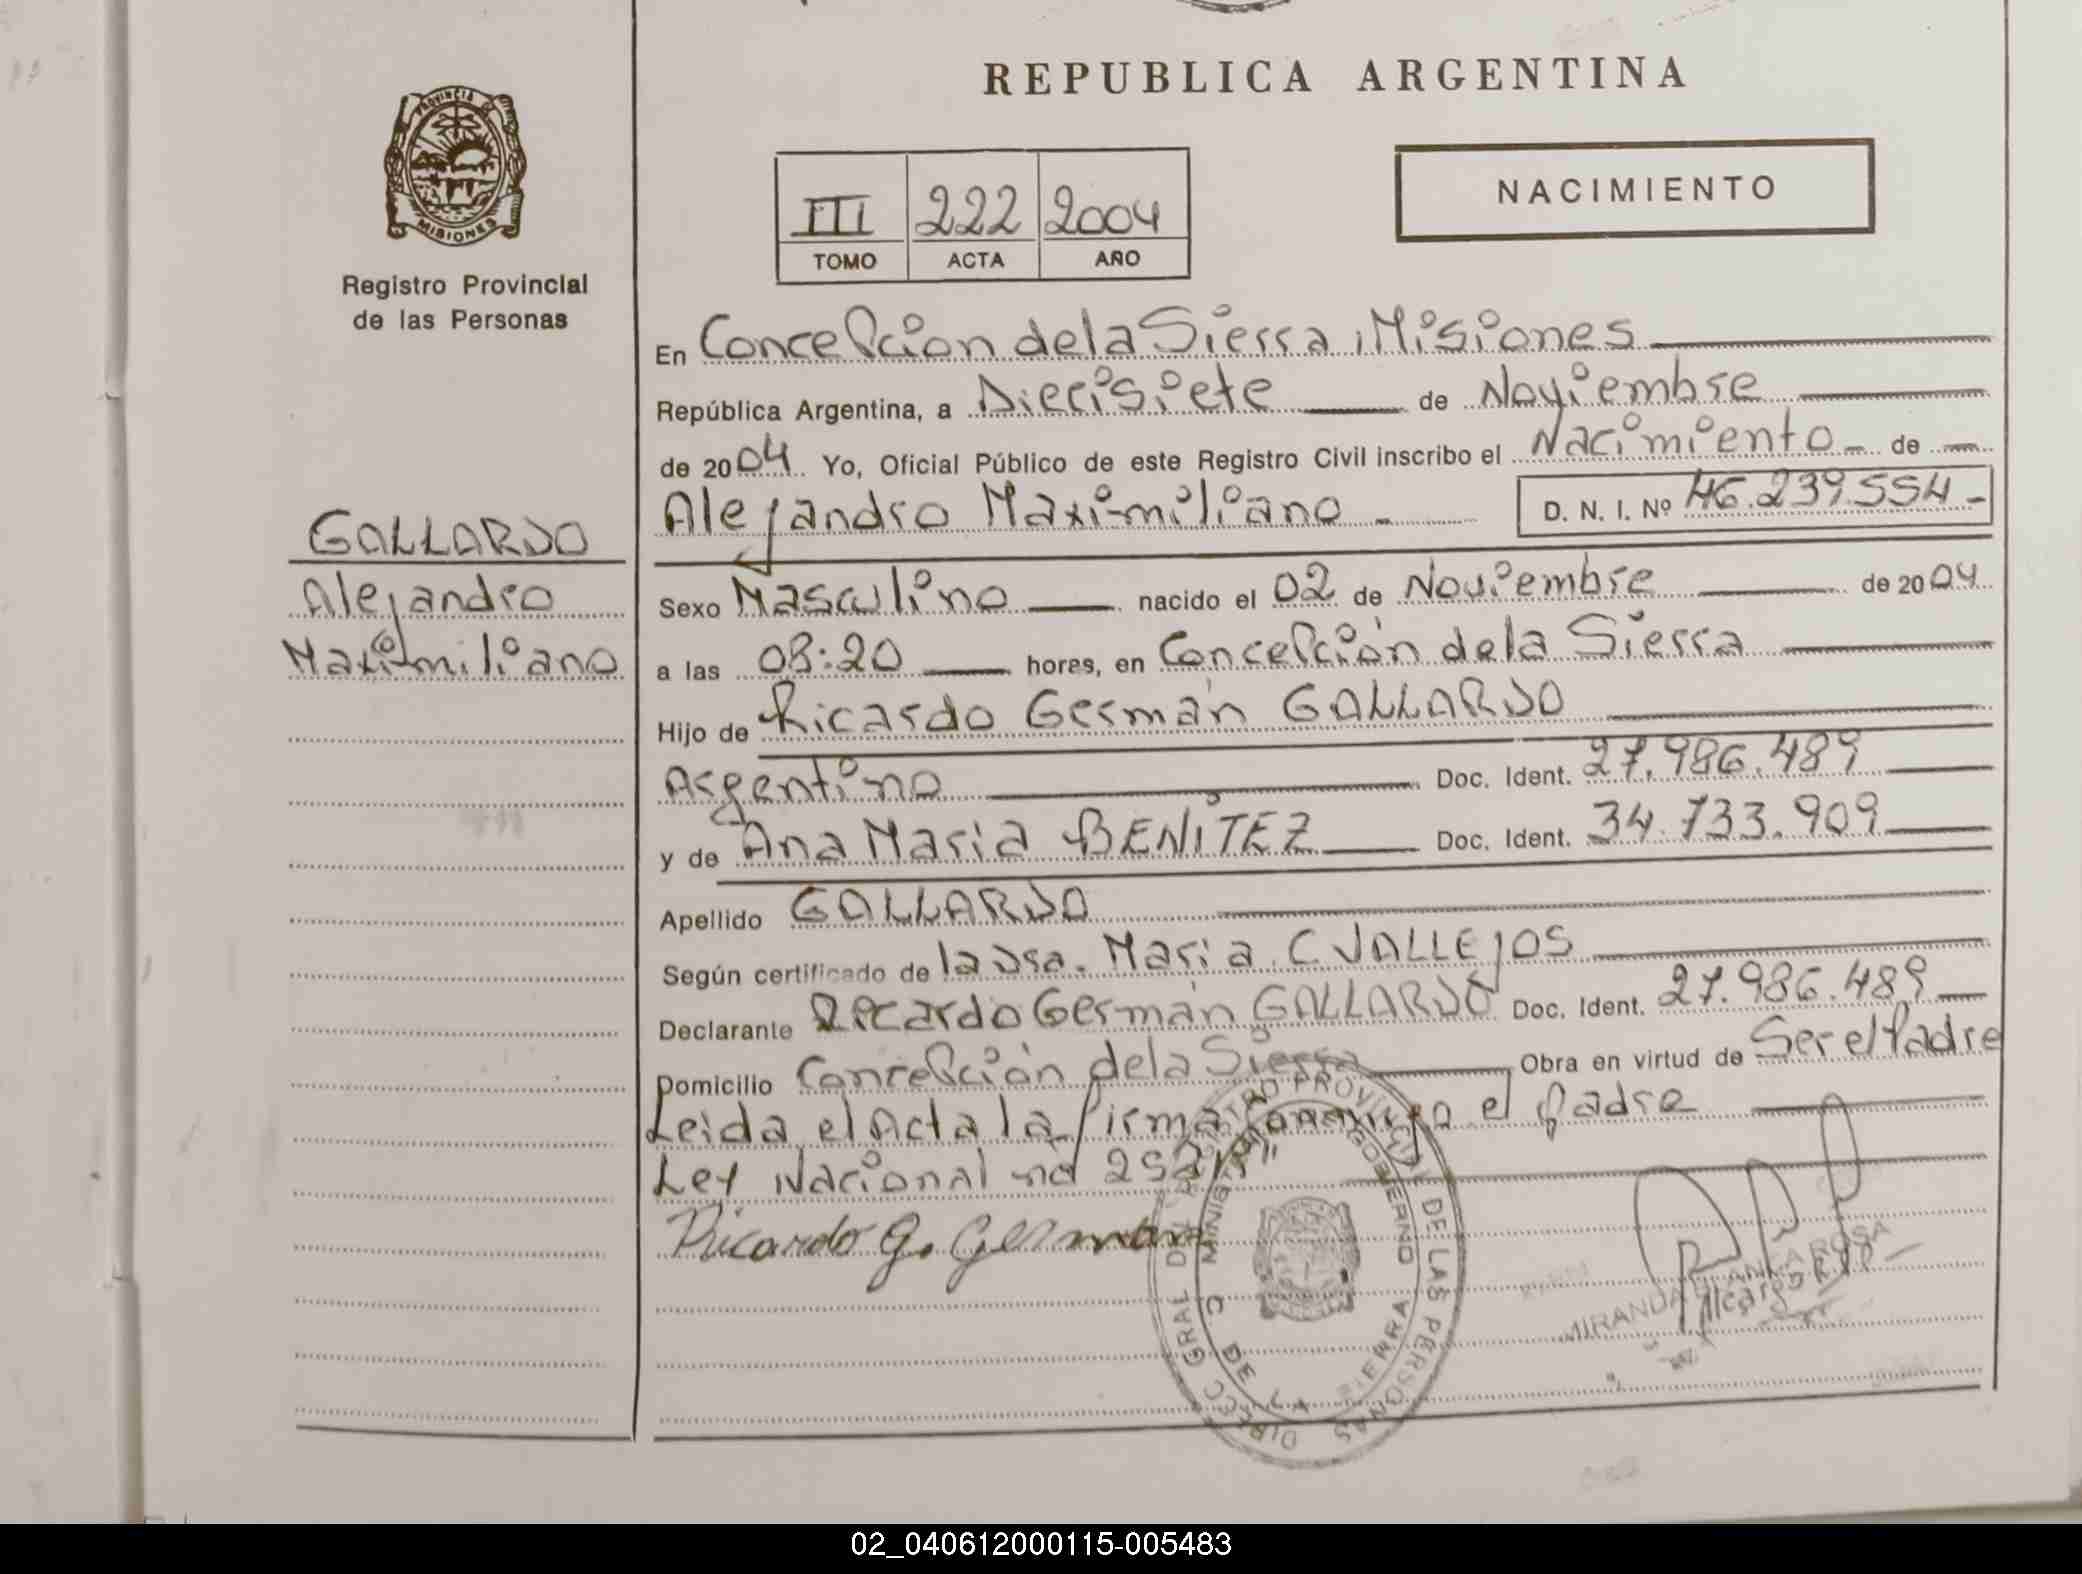 REPUBLICA ARGENTINA
PROVINCIA DE
MISIONES
Registro Provincial
de las Personas
III 222 2004
TOMO ACTA AÑO
NACIMIENTO
En Concepcion de la Sierra, Misiones
República Argentina, a Diecisiete de Noviembre
de 2004 Yo, Oficial Público de este Registro Civil inscribo el Nacimiento de
Alejandro Maximiliano D. N. I. Nº 46.239.554
GALLARDO
Alejandro
Maximiliano
Sexo Masculino nacido el 02 de Noviembre de 2004
a las 08:20 hores, en Concepción de la Sierra
Hijo de Ricardo Germán GALLARDO
Argentino Doc. Ident. 27.986.489
y de Ana Maria BENÍTEZ Doc. Ident. 34.733.909
Apellido GALLARDO
Según certificado de la Dra. Maria C VALLEJOS
Declarante Ricardo Germán GALLARDO Doc. Ident. 27.986.489
Domicilio Concepción de la Sierra Obra en virtud de Ser el Padre
Leida el Acta la firma conmigo el padre
Ley Nacional nº
Ricardo G. German
DIREC GRAL DEL REGISTRO PROVINCIAL DE LAS PERSONAS
MINISTERIO GOBIERNO
C DE LA SIERRA
MIRANDA BLANCA ROSA
02_040612000115-005483